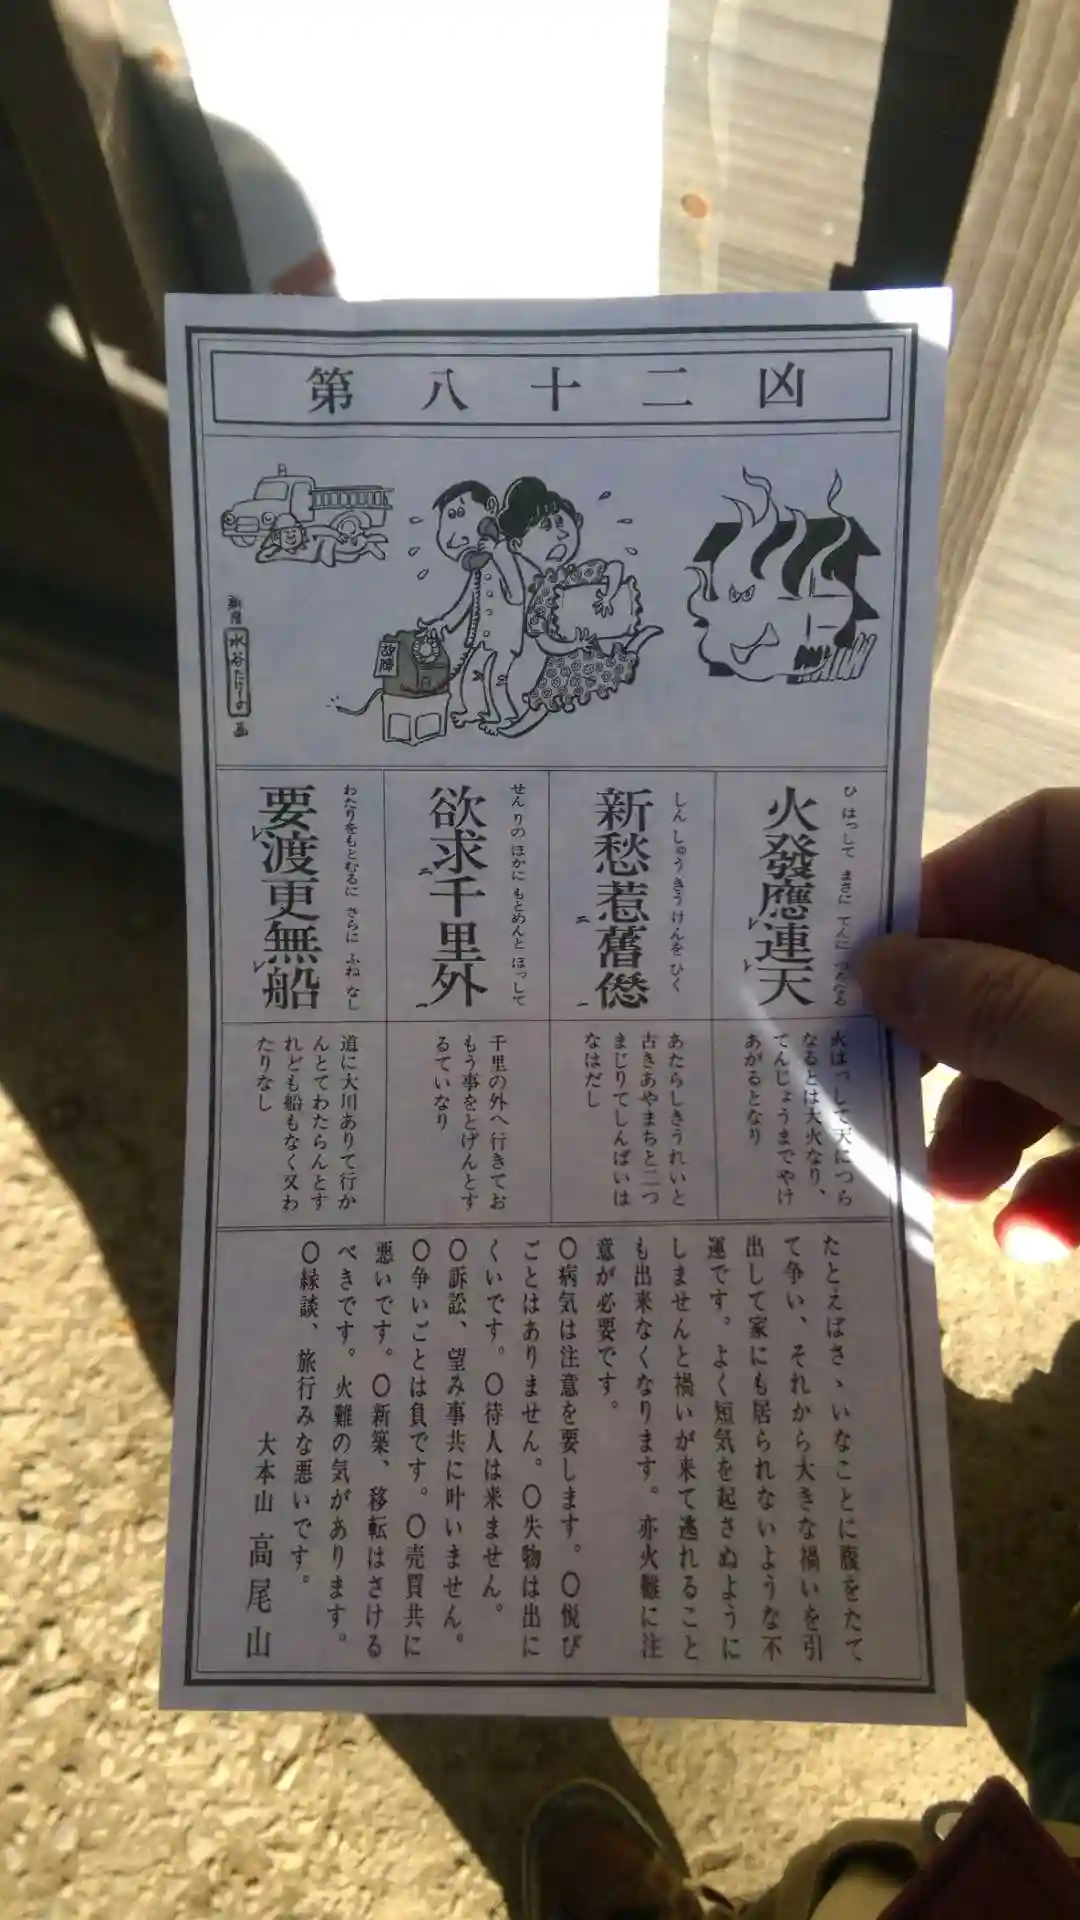 第八十二凶
故障
水谷たけ子画
火發應連天
ひ はっして まさに てんに つらなる
新愁惹舊愆
しん しゅう きう けんを ひく
欲求千里外
せん りの ほかに もとめんと ほっして
要渡更無船
わたりをもとむるに さらに ふね なし
火はっして天につら
なるとは大火なり、
てんじょうまでやけ
あがるとなり
あたらしきうれいと
古きあやまちと二つ
まじりてしんぱいは
なはだし
千里の外へ行きてお
もう事をとげんとす
るていなり
道に大川ありて行か
んとてわたらんとす
れども船もなく又わ
たりなし
たとえばさゝいなことに腹をたて
て争い、それから大きな禍いを引
出して家にも居られないような不
運です。よく短気を起さぬように
しませんと禍いが来て逃れること
も出来なくなります。亦火難に注
意が必要です。
〇病気は注意を要します。〇悦び
ごとはありません。〇失物は出に
くいです。〇待人は来ません。
〇訴訟、望み事共に叶いません。
〇争いごとは負です。〇売買共に
悪いです。〇新築、移転はさける
べきです。火難の気があります。
〇縁談、旅行みな悪いです。
大本山 高尾山